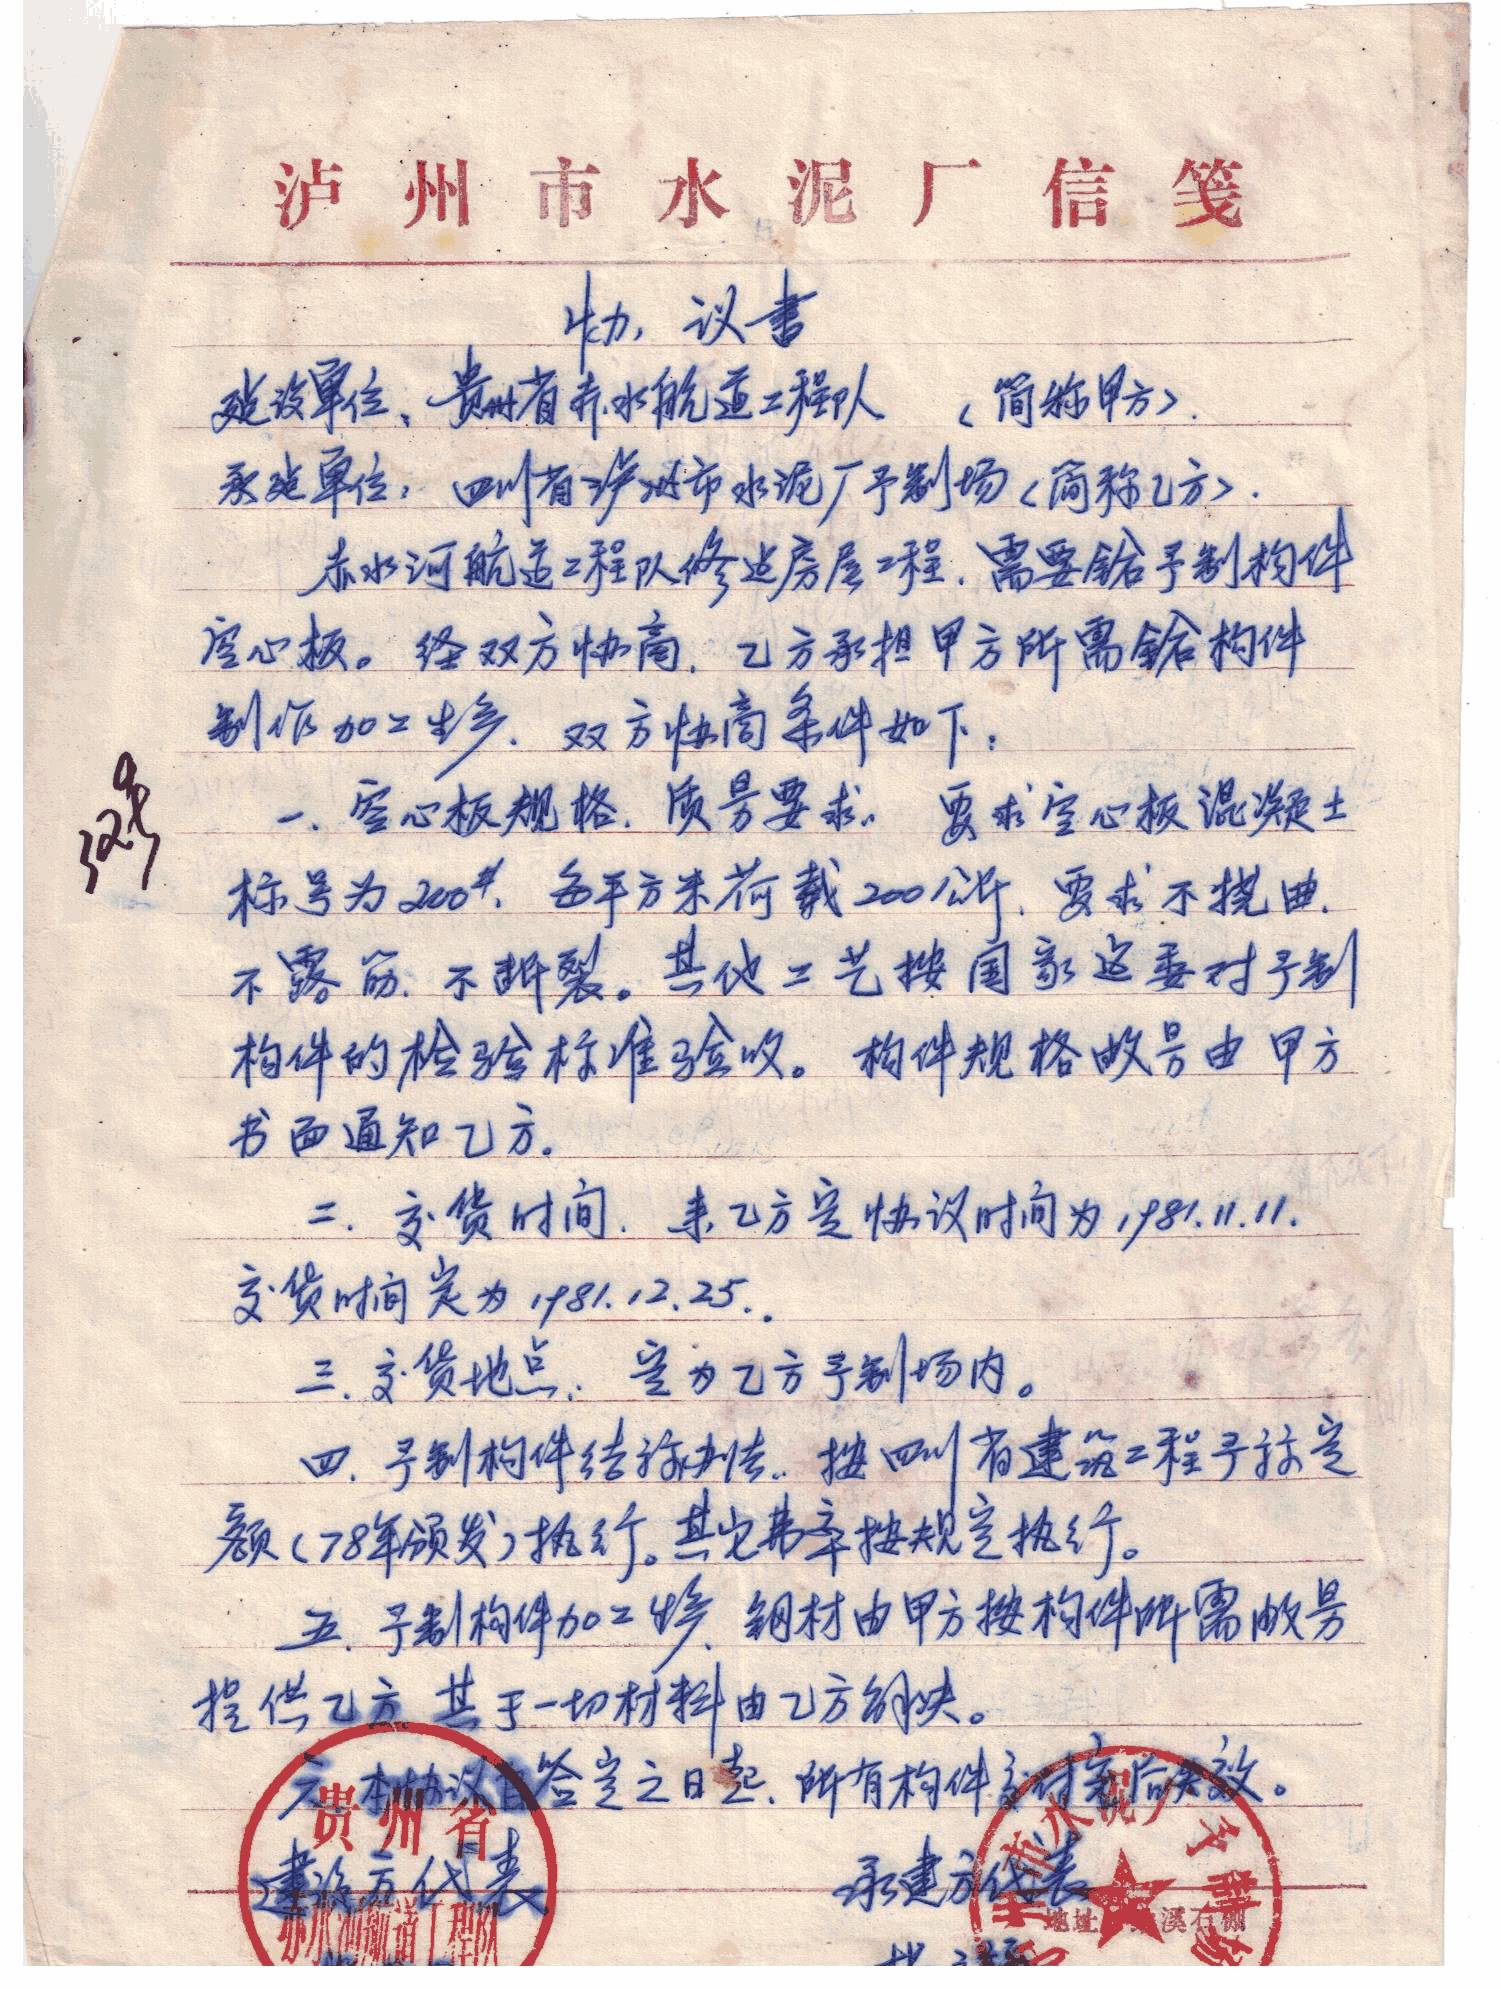 泸州市水泥厂信笺
协议书
建设单位：贵州省赤水航道工程队（简称甲方）.
承建单位：四川省泸州市水泥厂予制场（简称乙方）.
赤水河航道工程队修建房屋工程、需要砼予制构件
空心板。经双方协商、乙方承担甲方所需砼构件
制作加工生产、双方协商条件如下：
一、空心板规格、质量要求：要求空心板混凝土
标号为200#、每平方米荷载200公斤、要求不挠曲、
不露筋、不断裂。其他工艺按国家建委对予制
构件的检验标准验收。构件规格数量由甲方
书面通知乙方。
二、交货时间、来乙方定协议时间为1981.11.11.
交货时间定为1981.12.25.
三、交货地点：定为乙方予制场内。
四、予制构件结算办法：按四川省建筑工程予算定
额（78年颁发）执行。其它费率按规定执行。
五、予制构件加工生产、钢材由甲方按构件所需数量
提供乙方 其于一切材料由乙方解决。
六、本协议自签定之日起、所有构件交付完后失效。
建设方代表
承建方代表
贵州省
赤水河航道工程队
市水泥厂予制场
地址 溪石